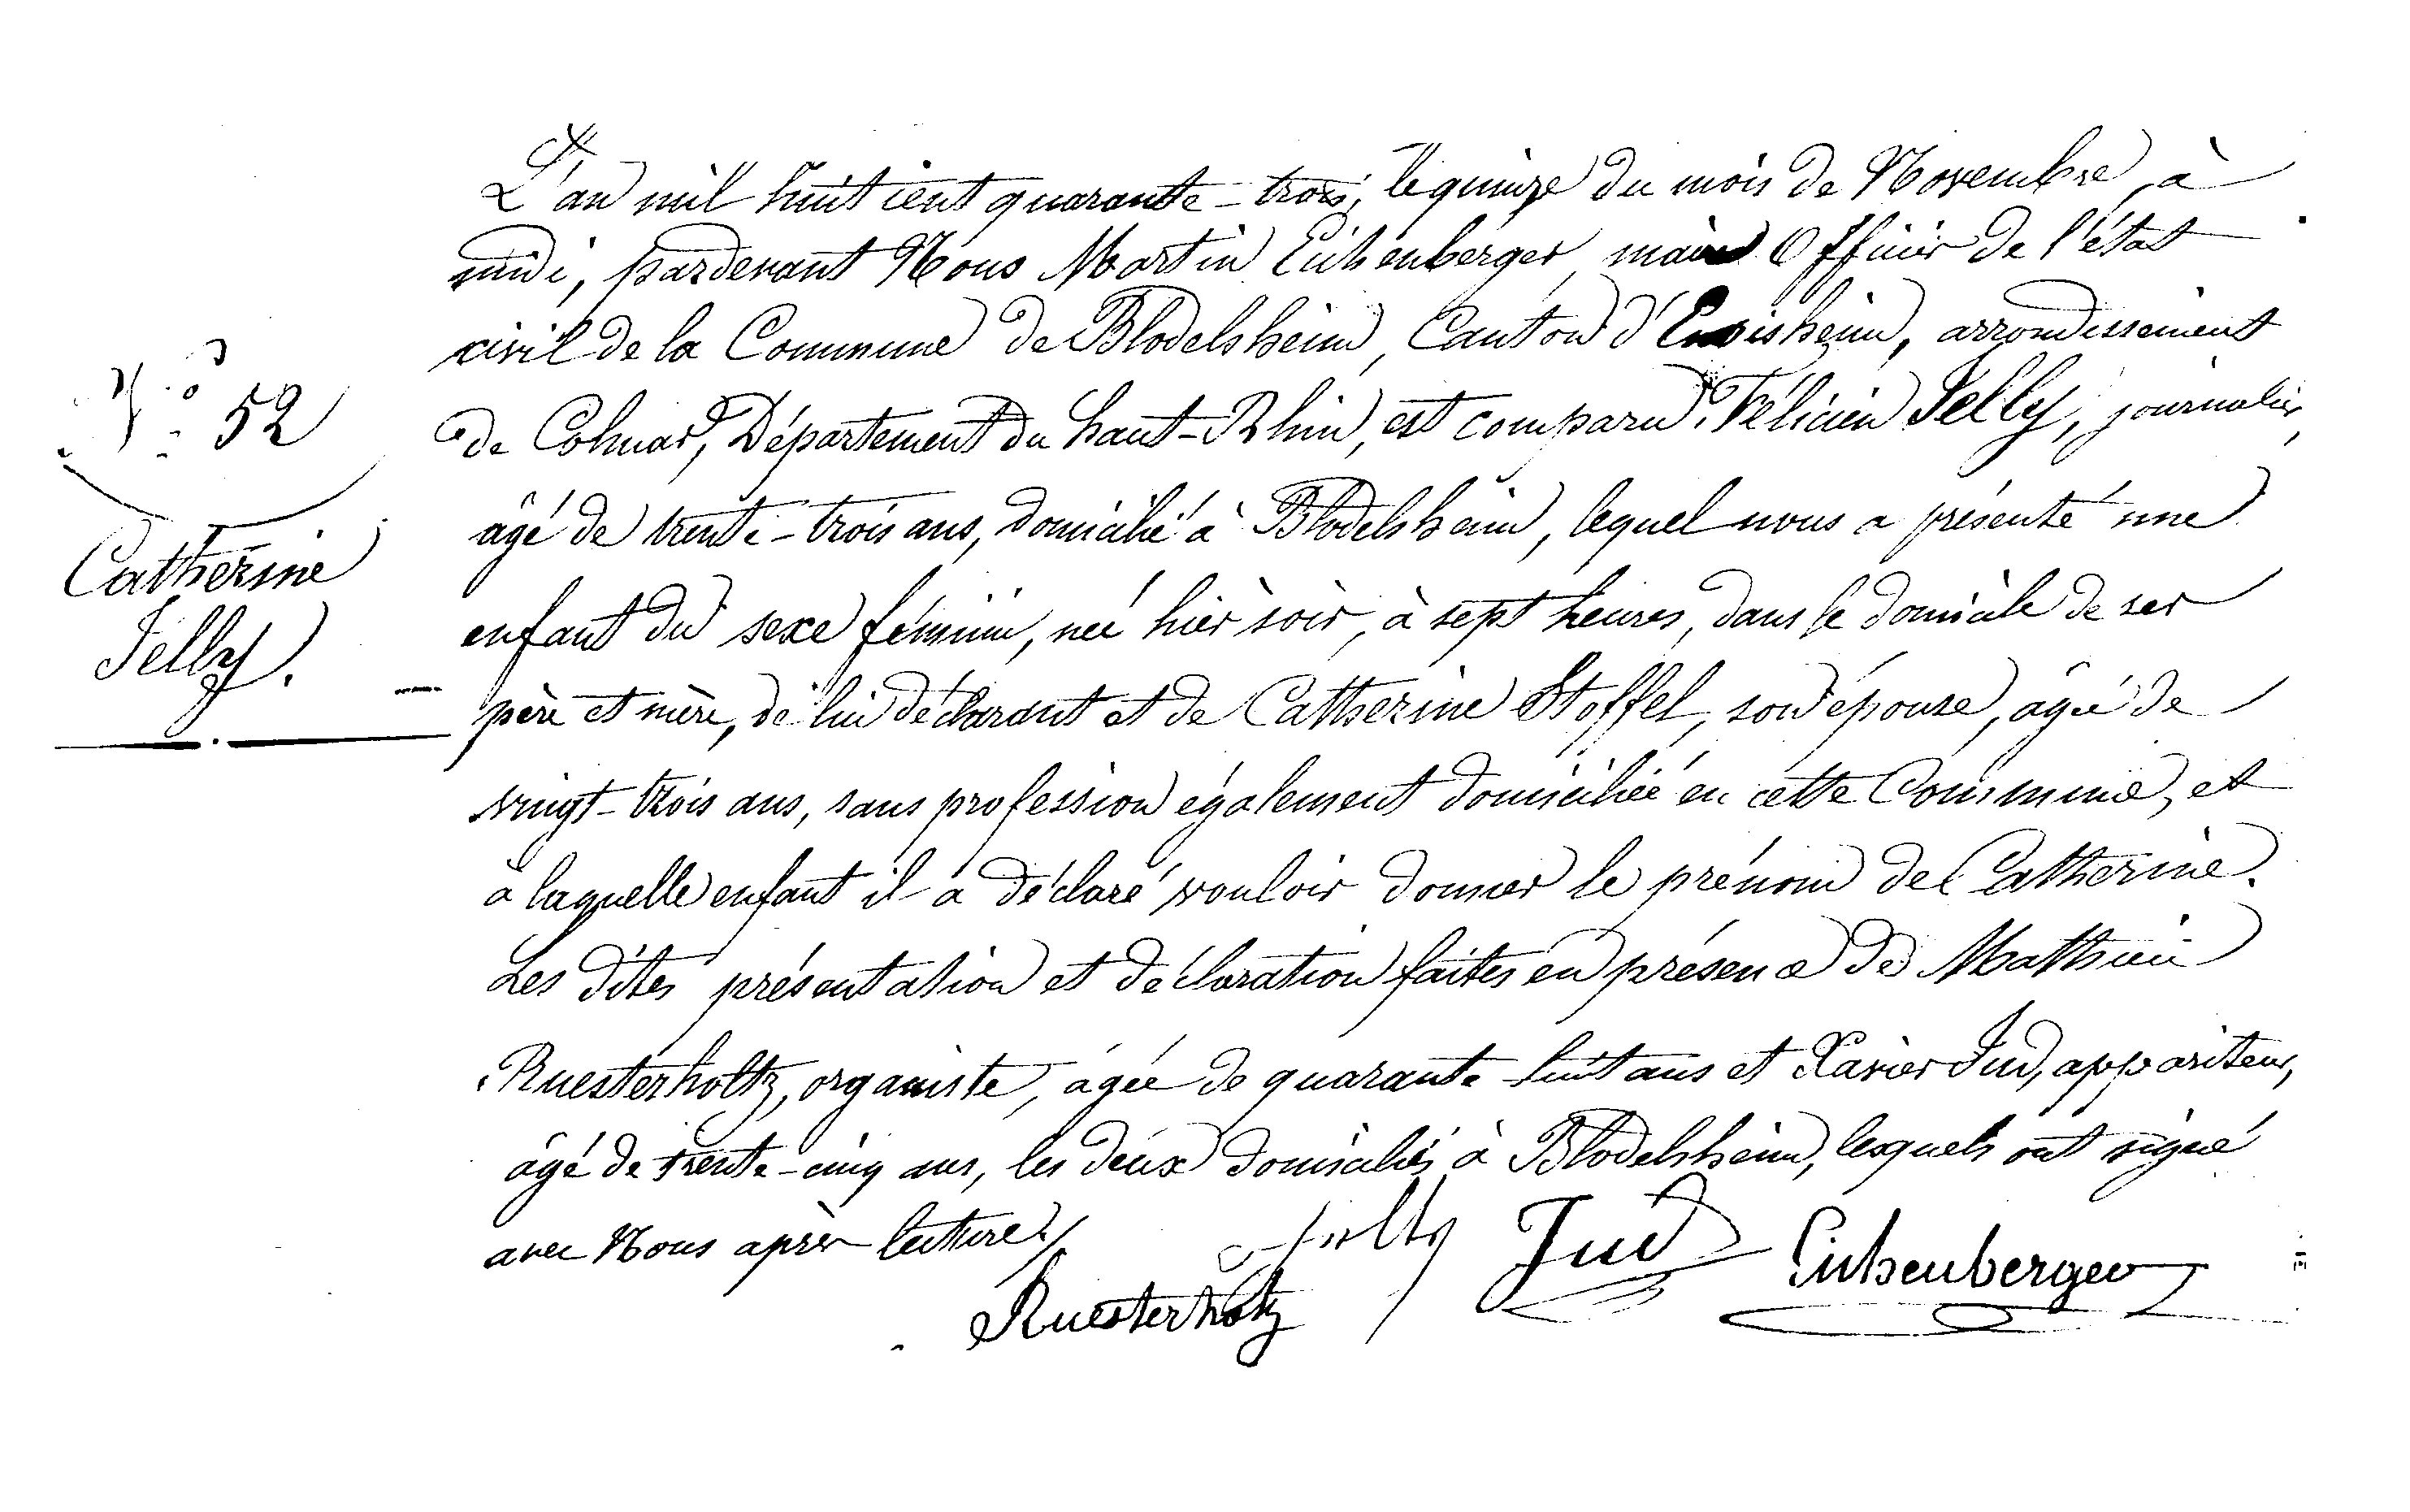 N.° 52
Catherine
Jelly.
L'an mil huit cent quarante-trois, le quinze du mois de Novembre, à
midi, pardevant Nous Martin Eichenberger, maire Officier de l'état
civil de la Commune de Blodelsheim, Canton d'Ensisheim, arrondissement
de Colmar, Département du haut-Rhin, est comparu Félicien Jelly, journalier,
âgé de trente-trois ans, domicilié à Blodelsheim, lequel nous a présenté une
enfant du sexe féminin, née hier soir, à sept heures, dans le domicile de ses
père et mère, de lui déclarant et de Catherine Stoffel, son épouse, âgée de
vingt-trois ans, sans profession également domiciliée en cette Commune, et
à laquelle enfant il a déclaré vouloir donner le prénom de Catherine.
Les dites présentation et déclaration faites en présence de Mathieu
Ruesterholtz, organiste, âgée de quarante-huit ans et Xavier Jud, appariteur,
âgé de trente-cinq ans, les deux domiciliés à Blodelsheim, lesquels ont signé
avec Nous après lecture.
Jelly Jud Eichenberger
Ruesterholtz